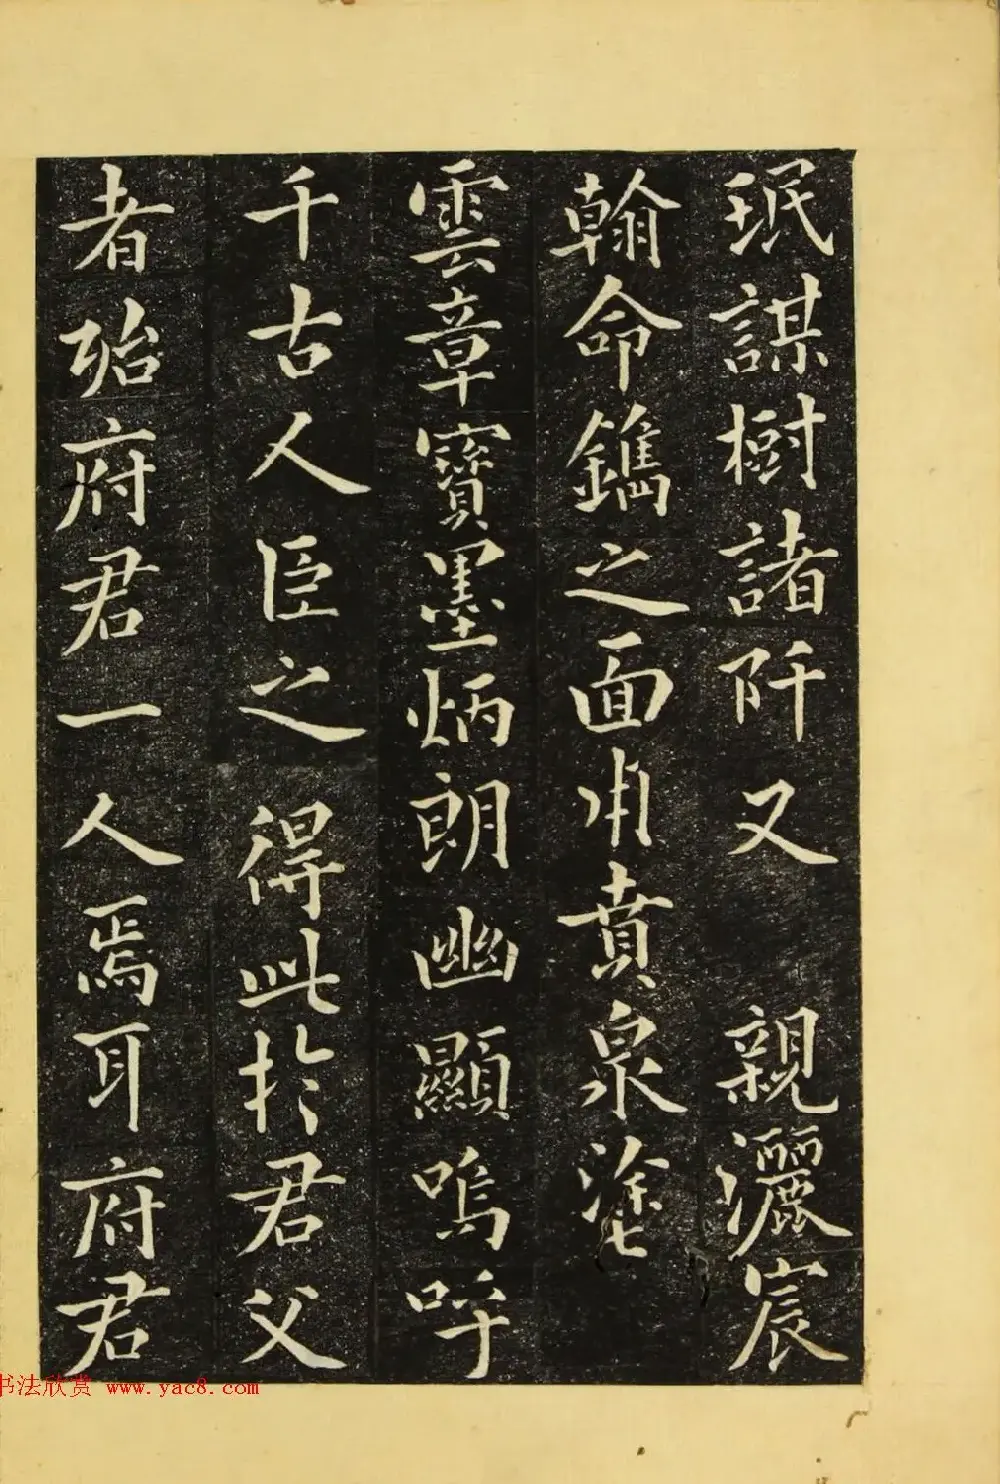 珉謀樹諸阡又親灑宸
翰命鐫之面用賁泉塗
雲章寶墨炳朗幽顯嗚呼
千古人臣之得此於君父
者殆府君一人焉耳府君
书法欣赏 www.yac8.com